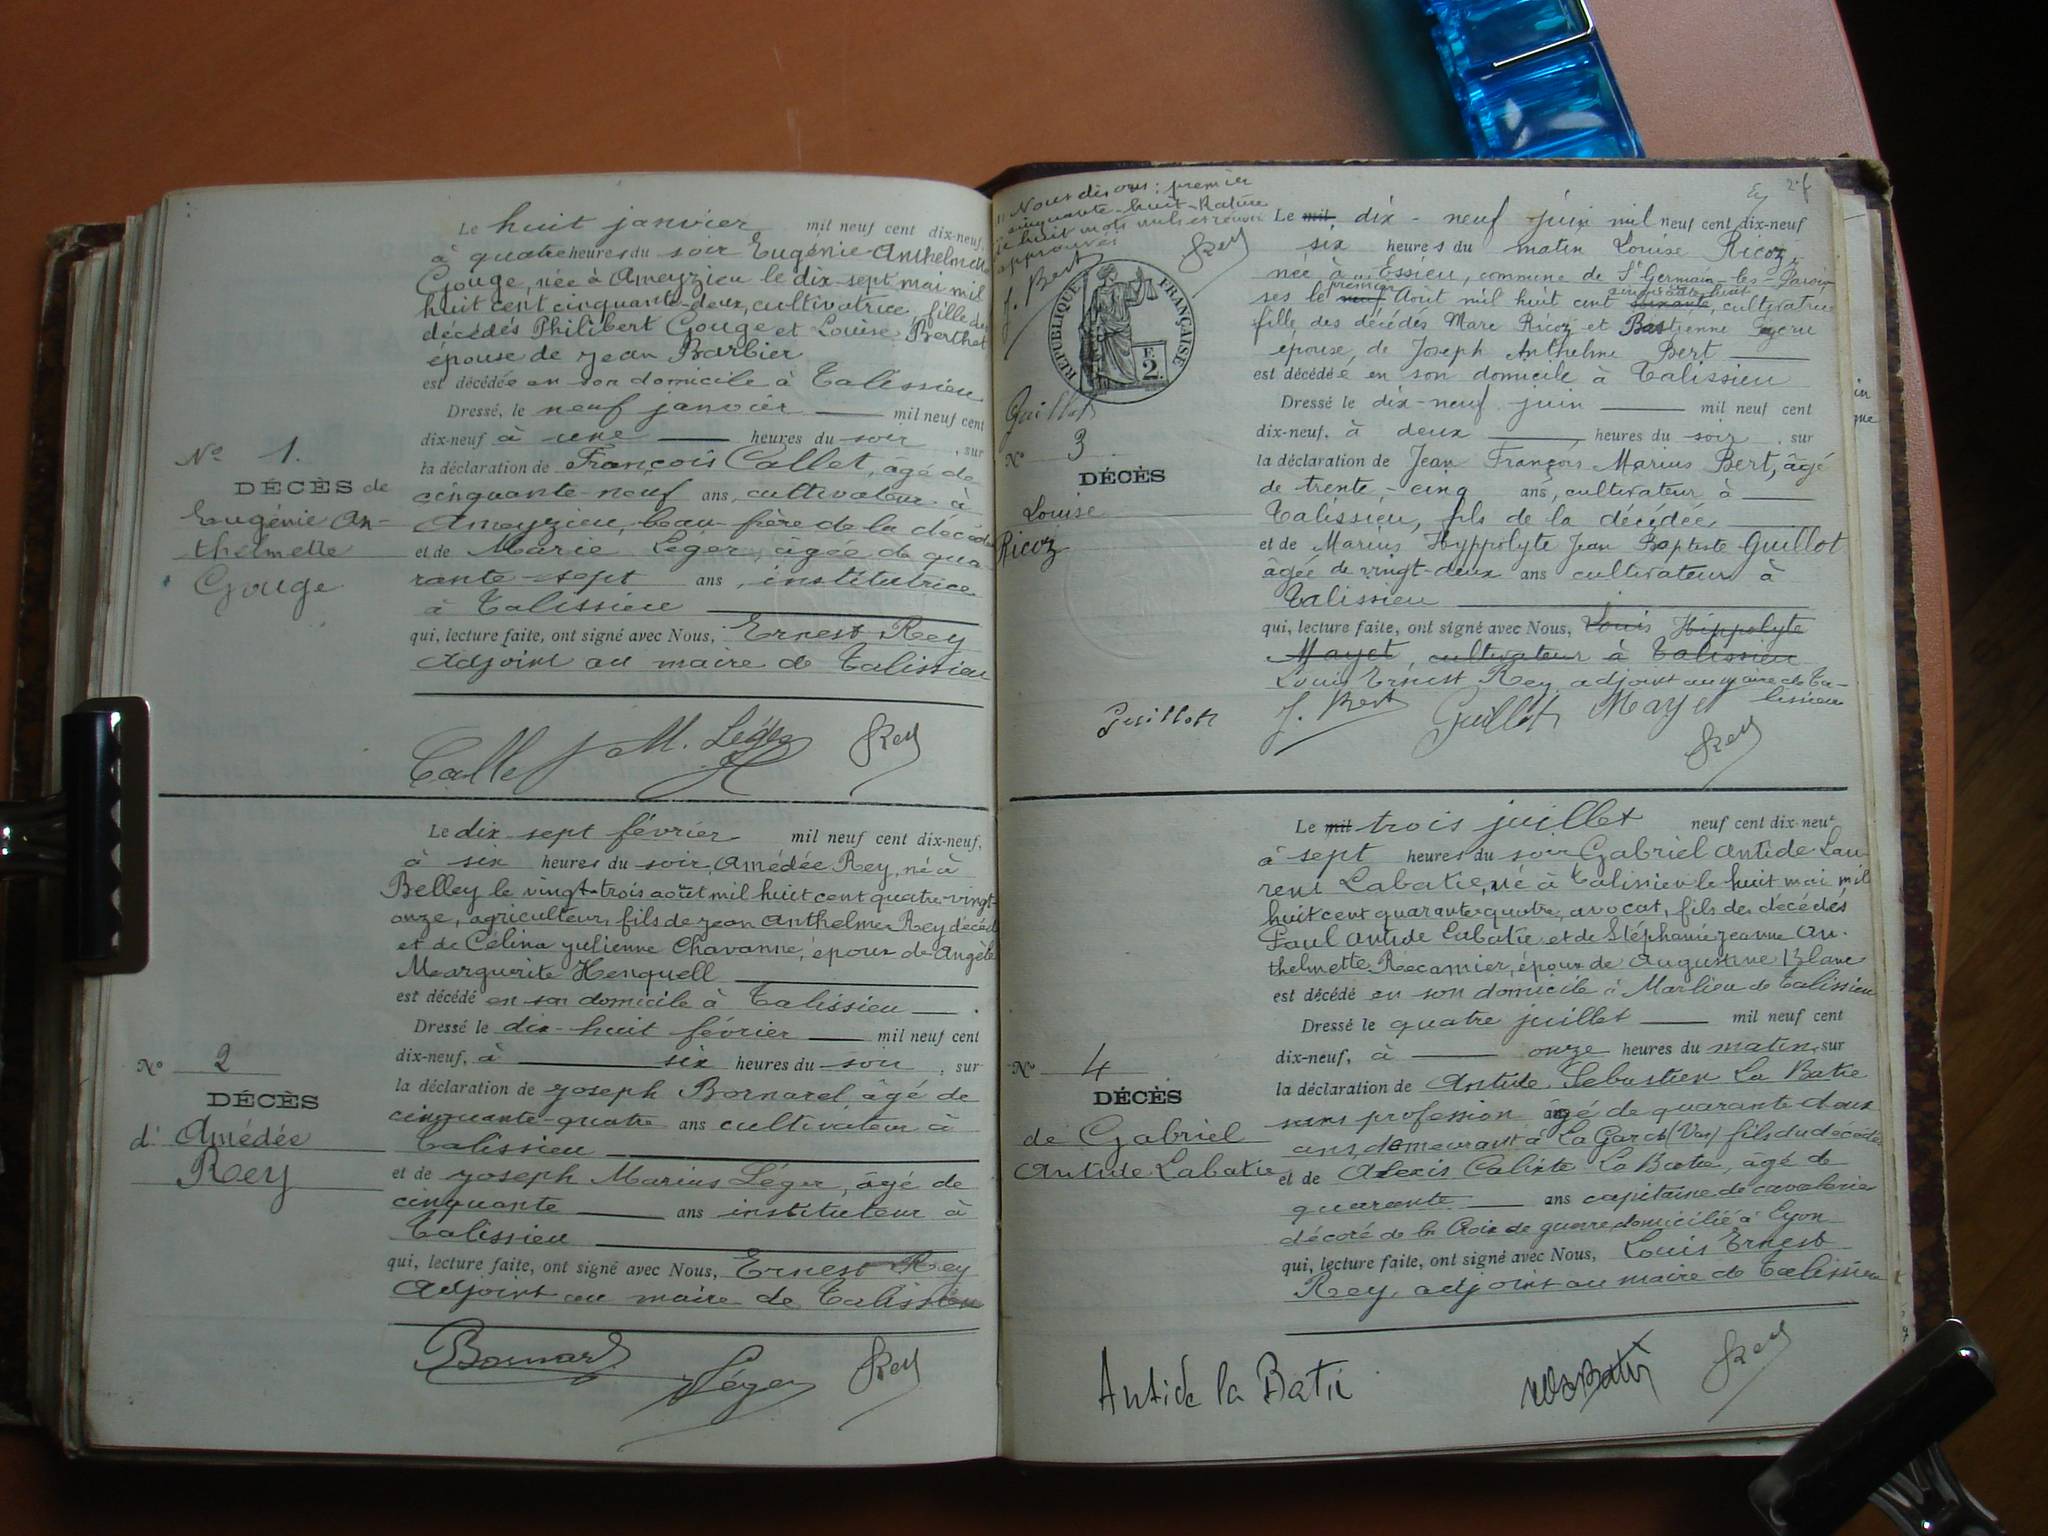 Le huit janvier mil neuf cent dix-neuf,
à quatre heures du soir Eugénie Anthelmette
Gouge, née à Ameyzieu le dix-sept mai mil
huit cent cinquante-deux, cultivatrice, fille des
décédés Philibert Gouge et Louise Berthet
épouse de Jean Barbier
est décédée en son domicile à Talissieu
Dressé, le neuf janvier mil neuf cent
dix-neuf à une heures du soir, sur
la déclaration de François Callet, âgé de
cinquante-neuf ans, cultivateur à
Ameyzieu, beau-frère de la décédée
et de Marie Léger, âgée de qua-
rante-sept ans, institutrice
à Talissieu
qui, lecture faite, ont signé avec Nous, Ernest Rey
Adjoint au maire de Talissieu
Nº 1.
DÉCÈS de
Eugénie An-
thelmette
Gouge
Callet M. Léger Rey
Le dix-sept février mil neuf cent dix-neuf,
à six heures du soir, Amédée Rey, né à
Belley le vingt-trois août mil huit cent quatre-vingt-
onze, agriculteur, fils de Jean Anthelme Rey décédé
et de Célina Julienne Chavanne, époux de Angèle
Marguerite Henquell
est décédé en son domicile à Talissieu
Dressé le dix-huit février mil neuf cent
dix-neuf, à six heures du soir, sur
la déclaration de Joseph Bornarel âgé de
cinquante-quatre ans cultivateur à
Talissieu
et de Joseph Marius Léger, âgé de
cinquante ans instituteur à
Talissieu
qui, lecture faite, ont signé avec Nous, Ernest Rey
Adjoint au maire de Talissieu
Nº 2
DÉCÈS
d' Amédée
Rey
Léger Rey
Nous disons: premier
cinquante-huit. Rature
de huit mots nuls
approuvés
J. Bert Rey
Guillot
RÉPUBLIQUE FRANÇAISE
2.
2 f
Le mil dix-neuf juin mil neuf cent dix-neuf
six heures du matin Louise Ricoz,
née à Essieu, commune de St Germain-les-Parois-
premier cinquante-huit
ses le neuf Août mil huit cent soixante, cultivatrice
fille des décédés Marc Ricoz et Bastienne
épouse, de Joseph Anthelme Bert
est décédée en son domicile à Talissieu
Dressé le dix-neuf juin mil neuf cent
dix-neuf, à deux heures du soir, sur
la déclaration de Jean François Marius Bert, âgé
de trente-cinq ans, cultivateur à
Talissieu, fils de la décédée
et de Marius Hyppolyte Jean Baptiste Guillot
âgée de vingt-deux ans cultivateur à
Talissieu
qui, lecture faite, ont signé avec Nous, Louis Hippolyte
Mayet, cultivateur à Talissieu
Louis Ernest Rey, adjoint au maire de Ta-
lissieu
Nº 3
DÉCÈS
Louise
Ricoz
Guillot J. Bert Guillot Mayet
Rey
Le mil trois juillet neuf cent dix-neuf
à sept heures du soir Gabriel Antide Lau-
rent Labatie, né à Talissieu le huit mai mil
huit cent quarante-quatre, avocat, fils des décédés
Paul Antide Labatie et de Stéphanie Jeanne An-
thelmette Récamier, époux de Augustine Blanc
est décédé en son domicile à Marlieu de Talissieu
Dressé le quatre juillet mil neuf cent
dix-neuf, à onze heures du matin, sur
la déclaration de Antide Sébastien La Batie
sans profession âgé de quarante-deux
ans, demeurant à La Garde (Var) fils du décédé
et de Alexis Calixte La Batie, âgé de
quarante ans capitaine de cavalerie
décoré de la Croix de guerre, domicilié à Lyon
qui, lecture faite, ont signé avec Nous, Louis Ernest
Rey, adjoint au maire de Talissieu
Nº 4
DÉCÈS
de Gabriel
Antide Labatie
Antide la Batie Rey